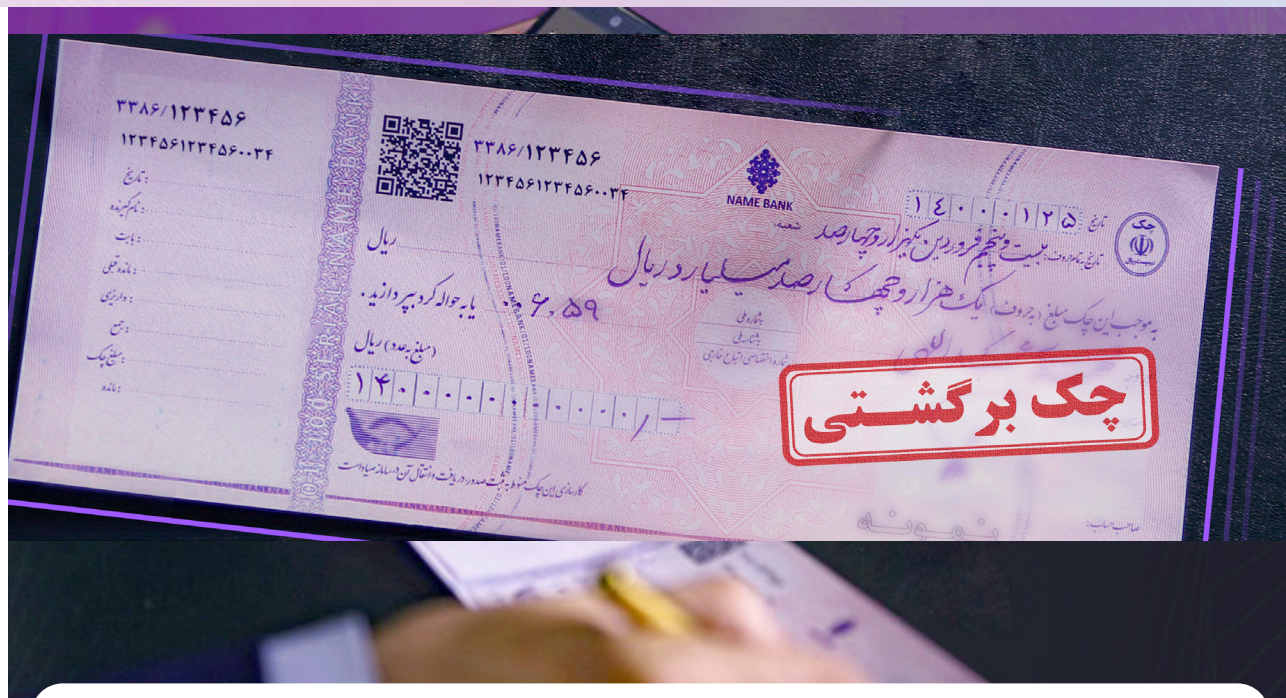 ۳۳۸۶/۱۲۳۴۵۶
۱۲۳۴۵۶۱۲۳۴۵۶۰۰۳۴
تاریخ:
نام گیرنده:
بابت:
مانده قبلی:
واریزی:
جمع:
مبلغ چک:
مانده:
۳۳۸۶/۱۲۳۴۵۶
۱۲۳۴۵۶۱۲۳۴۵۶۰۰۳۴
NAME BANK
شعبه:
چک
تاریخ: ۱۴۰۰۰۱۲۵
تاریخ بنام حروف: بیست و پنجم فروردین یکهزار و چهارصد
به موجب این چک مبلغ (بحروف) یک هزار و چهارصد میلیارد ریال
ریال
شماره ملی
شناسه ملی
شماره اختصاصی اتباع خارجی
یا به حواله کرد بپردازید.
(مبلغ بعدد) ریال
چک برگشتی
کارسازی این چک منوط به ثبت صدور، دریافت و انتقال آن در سامانه صیاد است
صاحب حساب:
نمونه